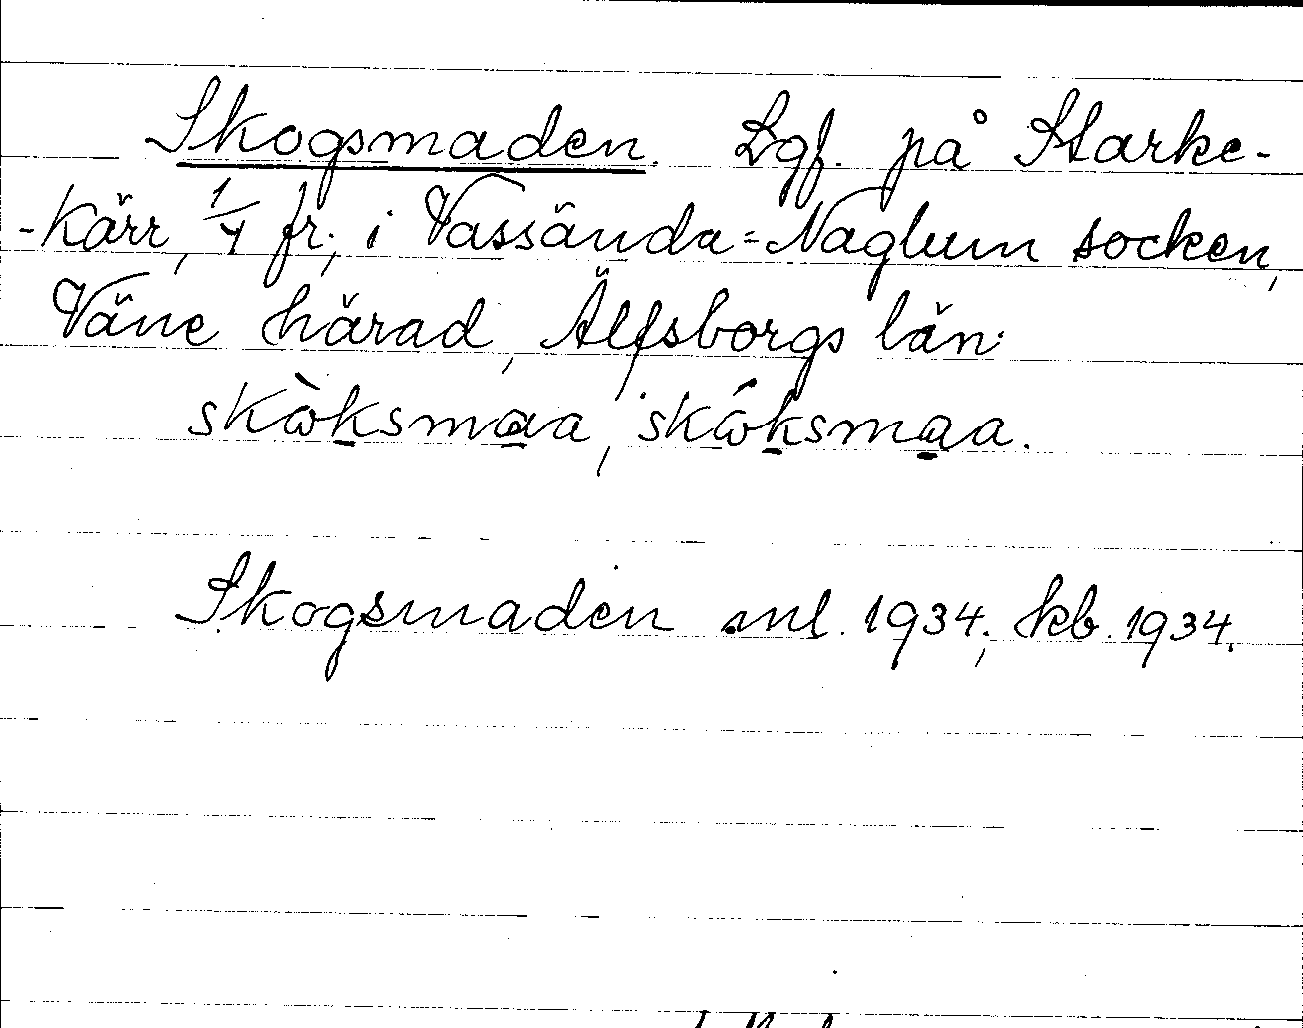 Skogsmaden. Lgf. på Starke-
-kärr, 1/4 fr., i Vassända=Naglum socken,
Väne härad, Älfsborgs län.
skὼksmaa, skώksmaa.
Skogsmaden ml. 1934; kb. 1934.